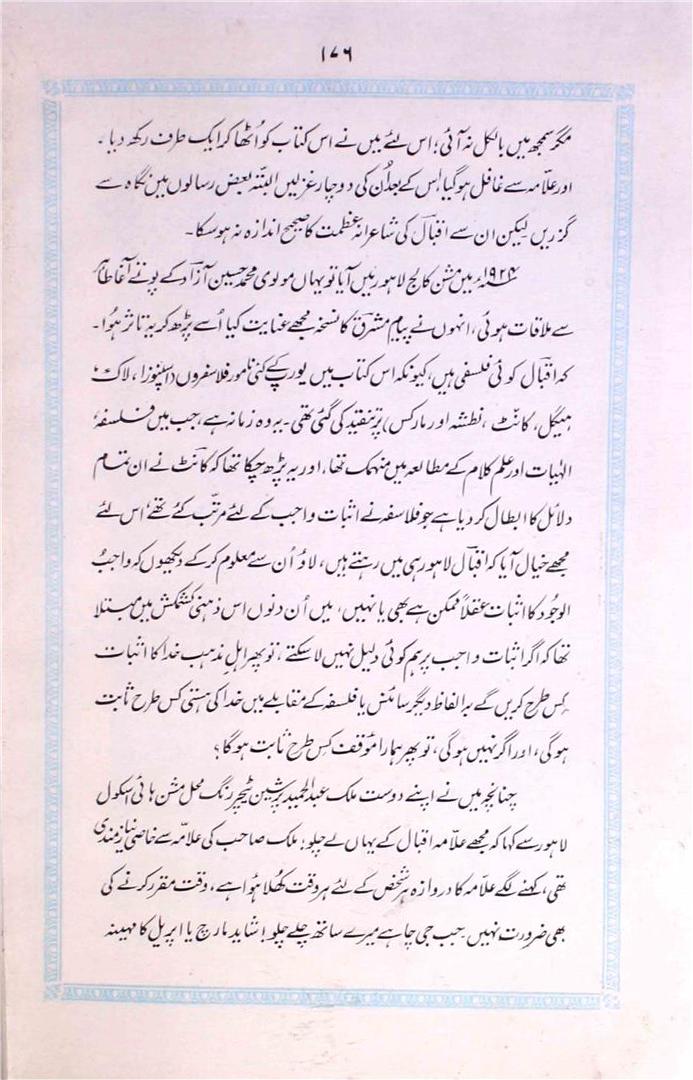 ۱۷۶
مگر سمجھ میں بالکل نہ آئی؛ اس لئے میں نے اس کتاب کو اُٹھا کر ایک طرف رکھ دیا ۔
اور علّامہ سے غافل ہو گیا اس کے بعد اُن کی دو چار غزلیں البتّہ بعض رسالوں میں نگاہ سے
گزریں لیکن ان سے اقبالؔ کی شاعرانہ عظمت کا صحیح اندازہ نہ ہو سکا۔
۱۹۲۴ء میں مشن کالج لاہور میں آیا تو یہاں مولوی محمد حسین آزادؔ کے پوتے آغا طاہر
سے ملاقات ہوئی، انہوں نے پیامِ مشرق کا نسخہ مجھے عنایت کیا اُسے پڑھ کر یہ تاثر ہوُا۔
کہ اقبالؔ کوئی فلسفی ہیں، کیونکہ اس کتاب میں یورپ کے کئی نامور فلاسفروں (اسپنوزا، لاک
ہیگل، کانٹ، نطشہ اور مارکس) پر تنقید کی گئی تھی۔ یہ وہ زمانہ ہے، جب میں فلسفۂ
الٰہیات اور علم کلام کے مطالعہ میں منہمک تھا، اور یہ پڑھ چکا تھا کہ کانٹ نے ان تمام
دلائل کا ابطال کر دیا ہے جو فلاسفہ نے اثبات واجب کے لئے مرتّب کئے تھے، اس لئے
مجھے خیال آیا کہ اقبالؔ لاہور ہی میں رہتے ہیں، لاؤ اُن سے معلوم کر کے دیکھوں کہ واجبُ
الوجود کا اثبات عقلاً ممکن ہے بھی یا نہیں، میں اُن دنوں اس ذہنی کشمکش میں مبتلا
تھا کہ اگر اثبات واجب پر ہم کوئی دلیل نہیں لا سکتے، تو پھر اہلِ مذہب خدا کا اثبات
کس طرح کریں گے بہ الفاظ دیگر سائنس یا فلسفہ کے مقابلے میں خدا کی ہستی کس طرح ثابت
ہو گی، اور اگر نہیں ہو گی، تو پھر ہمارا مؤقف کس طرح ثابت ہو گا؟
چنانچہ میں نے اپنے دوست ملک عبدالحمید پرشین ٹیچر رنگ محل مشن ہائی اسکول
لاہور سے کہا کہ مجھے علّامہ اقبال کے یہاں لے چلو؛ ملک صاحب کی علّامہ سے خاصی نیازمندی
تھی، کہنے لگے علّامہ کا دروازہ ہر شخص کے لئے ہر وقت کھلا ہوُا ہے، وقت مقرر کرنے کی
بھی ضرورت نہیں۔ جب جی چاہے میرے ساتھ چلے چلو! شاید مارچ یا اپریل کا مہینہ